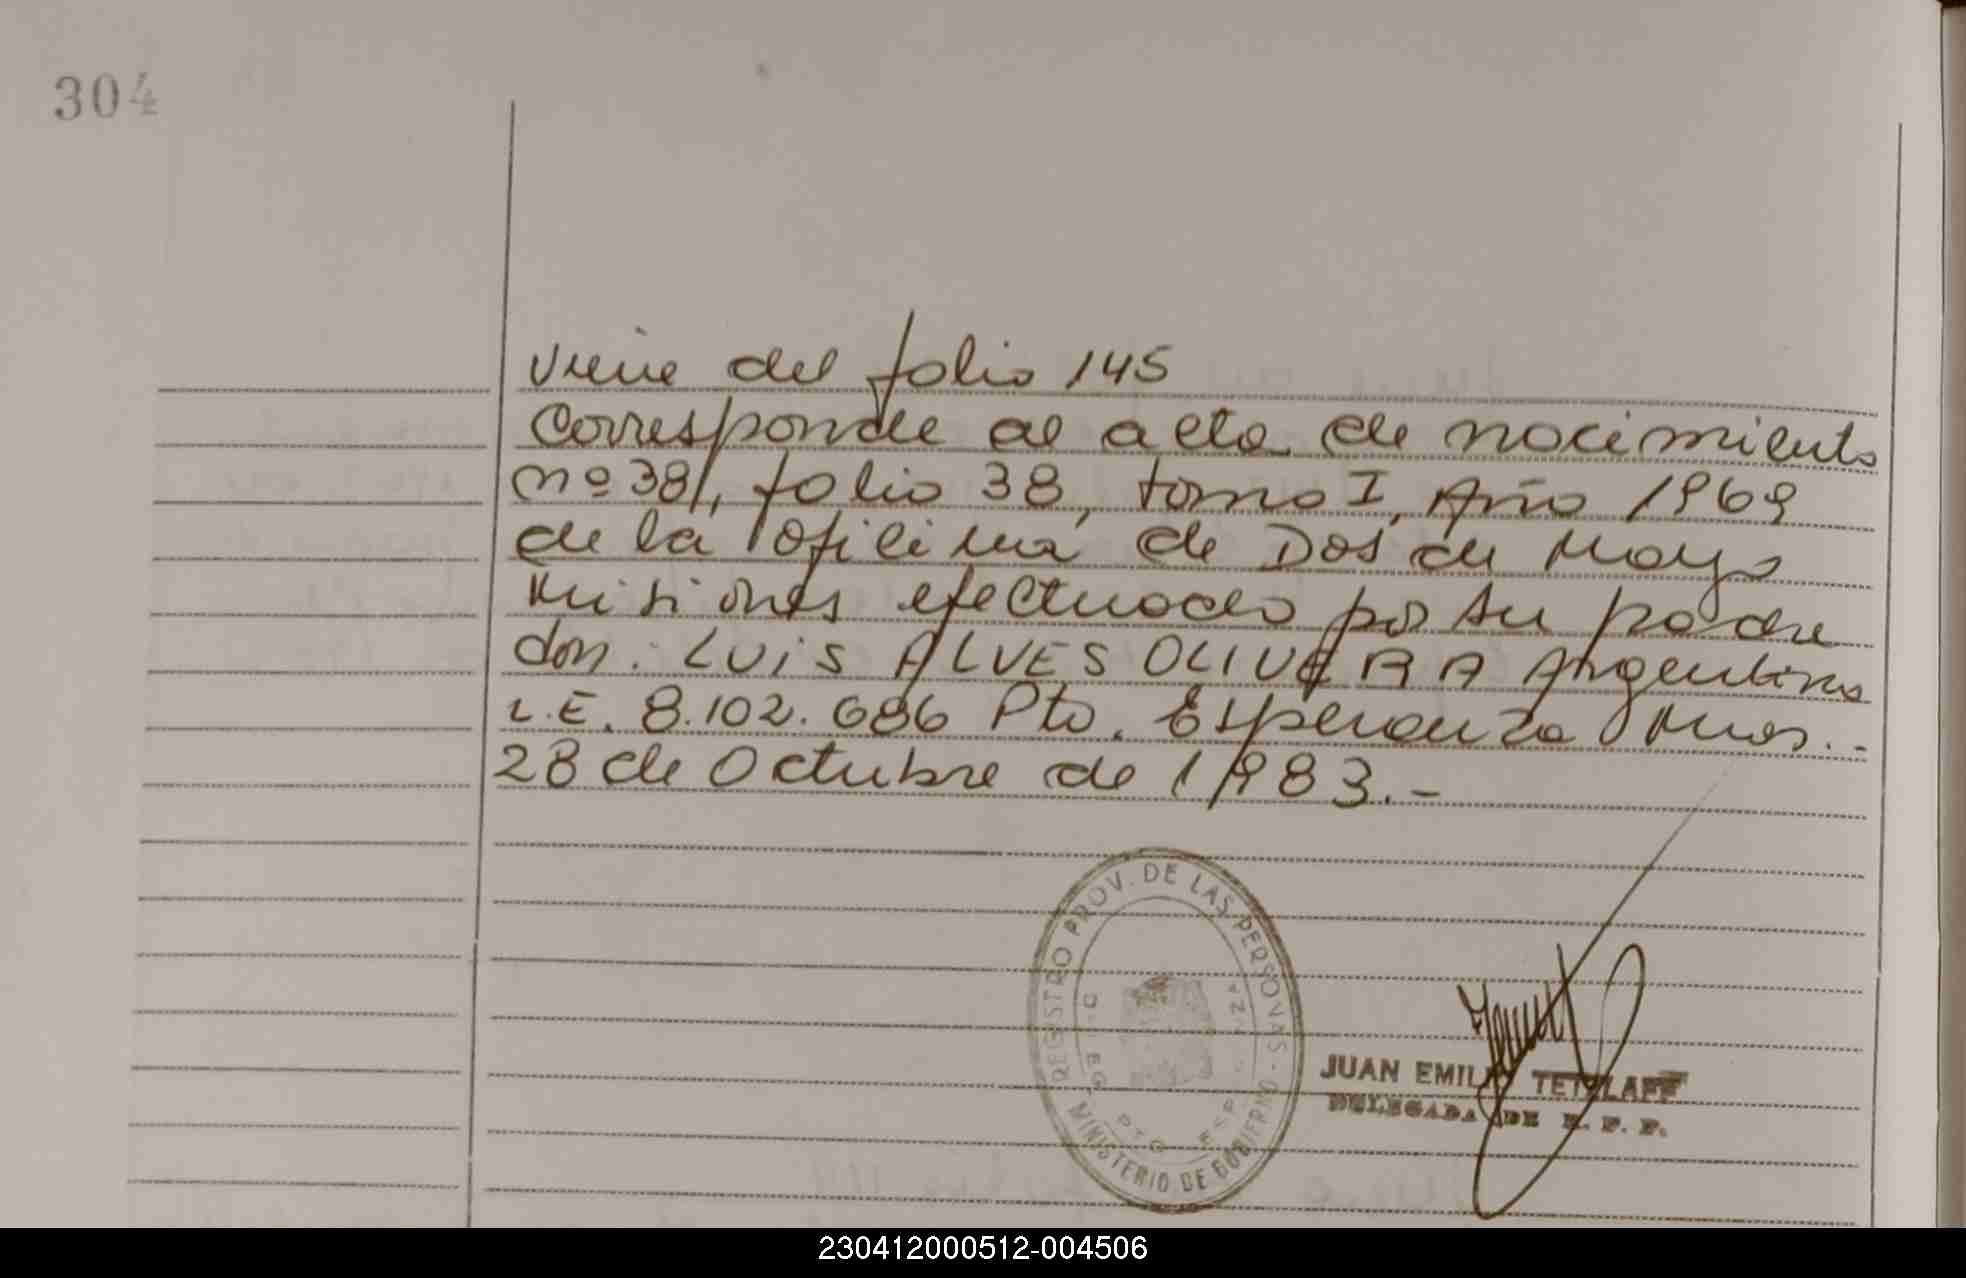 304
Viene del folio 145
Corresponde al acta de nacimiento
nº 38, folio 38, tomo I, Año 1969
de la Oficina de Dos de Mayo
Misiones efectuado por su padre
don: LUIS ALVES OLIVERA Argentino
L.E. 8.102.686 Pto. Esperanza Mnes.-
28 de Octubre de 1983.-
REGISTRO PROV. DE LAS PERSONAS - MINISTERIO DE GOBIERNO
JUAN EMILIO TETZLAFF
DELEGADA DE R. P. P.
230412000512-004506